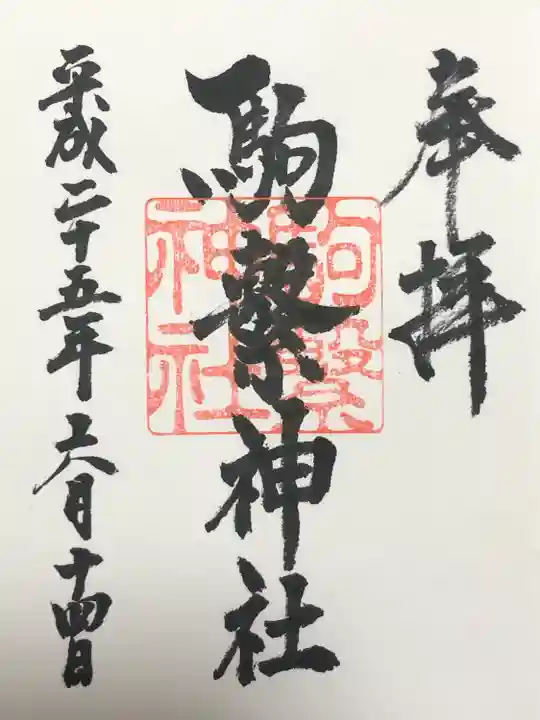 奉拝
駒繋神社
駒繋
神社
平成二十五年六月十四日